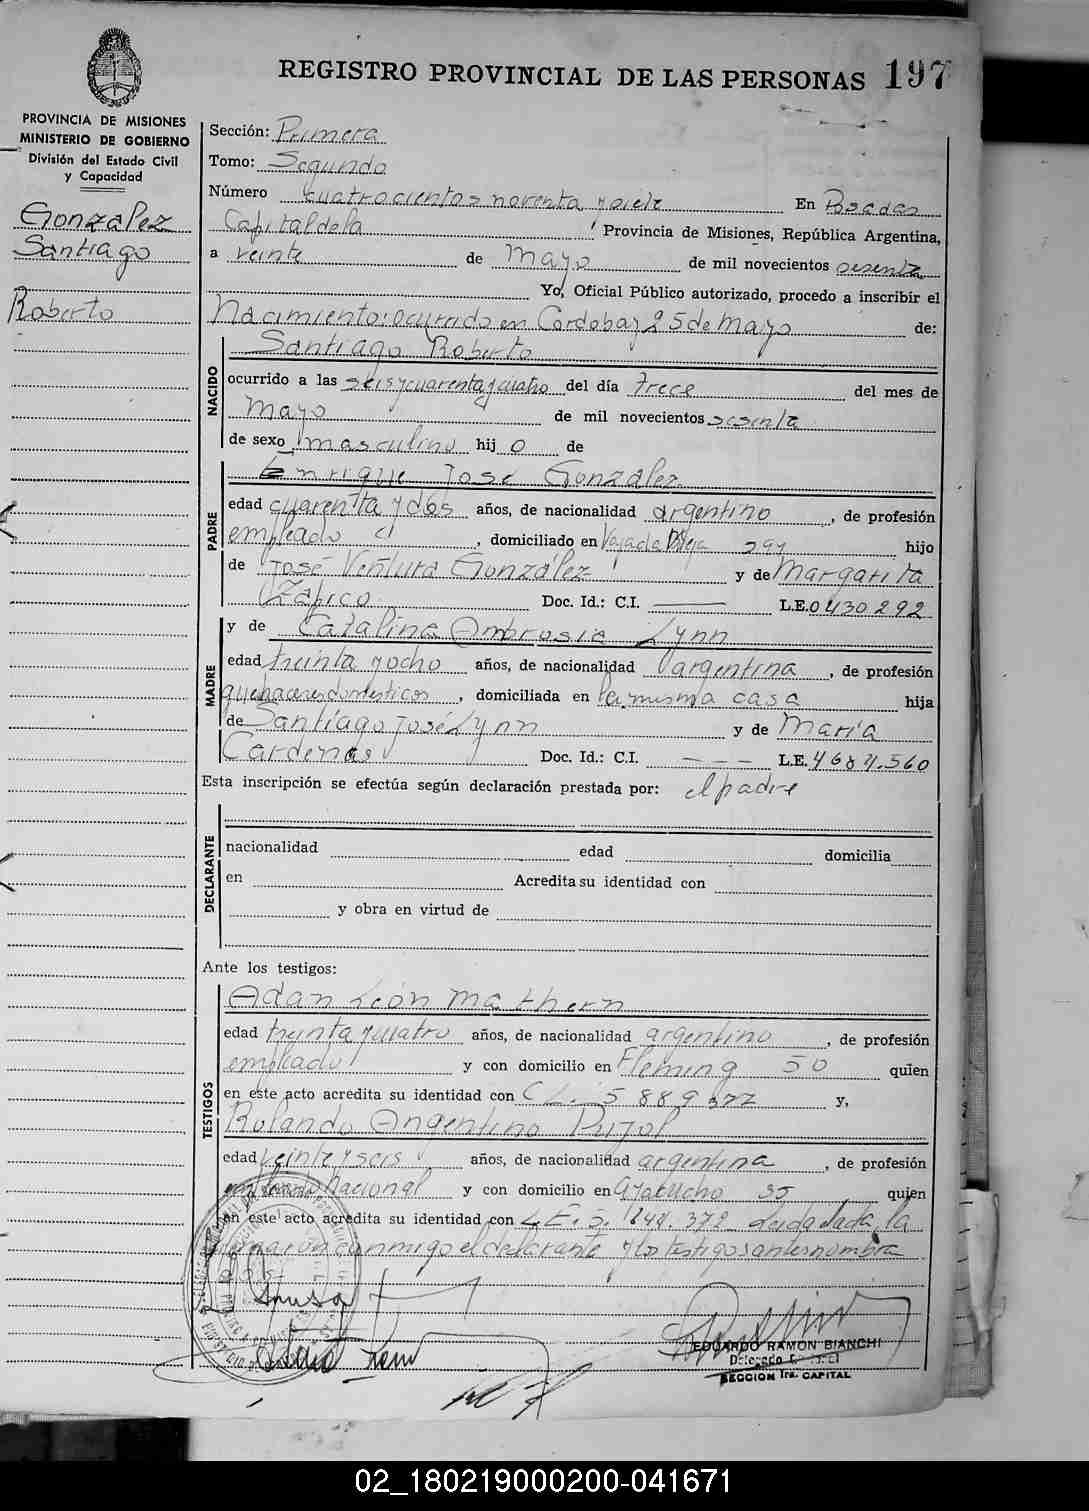 REGISTRO PROVINCIAL DE LAS PERSONAS 197
PROVINCIA DE MISIONES
MINISTERIO DE GOBIERNO
División del Estado Civil
y Capacidad
Gonzalez
Santiago
Roberto
Sección: Primera
Tomo: Segundo
Número cuatrocientos noventa y siete En Posadas
Capital de la Provincia de Misiones, República Argentina,
a veinte de Mayo de mil novecientos sesenta
Yo, Oficial Público autorizado, procedo a inscribir el
Nacimiento: ocurrido en Cordoba y 25 de Mayo de:
NACIDO
Santiago Roberto
ocurrido a las seis y cuarenta y cuatro del día Trece del mes de
Mayo de mil novecientos sesenta
de sexo masculino hij o de
PADRE
Enrique José González
edad cuarenta y dos años, de nacionalidad argentino, de profesión
empleado, domiciliado en Vieja 294 hijo
de José Ventura González y de Margarita
Zapico Doc. Id.: C.I. L.E. 0430292
MADRE
y de Catalina Ambrosia Lynn
edad treinta y ocho años, de nacionalidad argentina, de profesión
quehaceres domésticos, domiciliada en la misma casa hija
de Santiago José Lynn y de María
Cardenas Doc. Id.: C.I. - - - L.E. 4684.560
Esta inscripción se efectúa según declaración prestada por: el padre
DECLARANTE
nacionalidad edad domicilia
en Acredita su identidad con
y obra en virtud de
Ante los testigos:
TESTIGOS
Adan León Mathern
edad treinta y cuatro años, de nacionalidad argentino, de profesión
empleado y con domicilio en Fleming 50 quien
en este acto acredita su identidad con 5889 y,
Rolando Argentino Pujol
edad veinte y seis años, de nacionalidad argentina, de profesión
nacional y con domicilio en Ayacucho 35 quien
en este acto acredita su identidad con L.E. 5.844.372 Leída el acta, la
firmaron conmigo el declarante y los testigos antes nombra
dos
EDUARDO RAMON BIANCHI
SECCION 1ra. CAPITAL
02_180219000200-041671